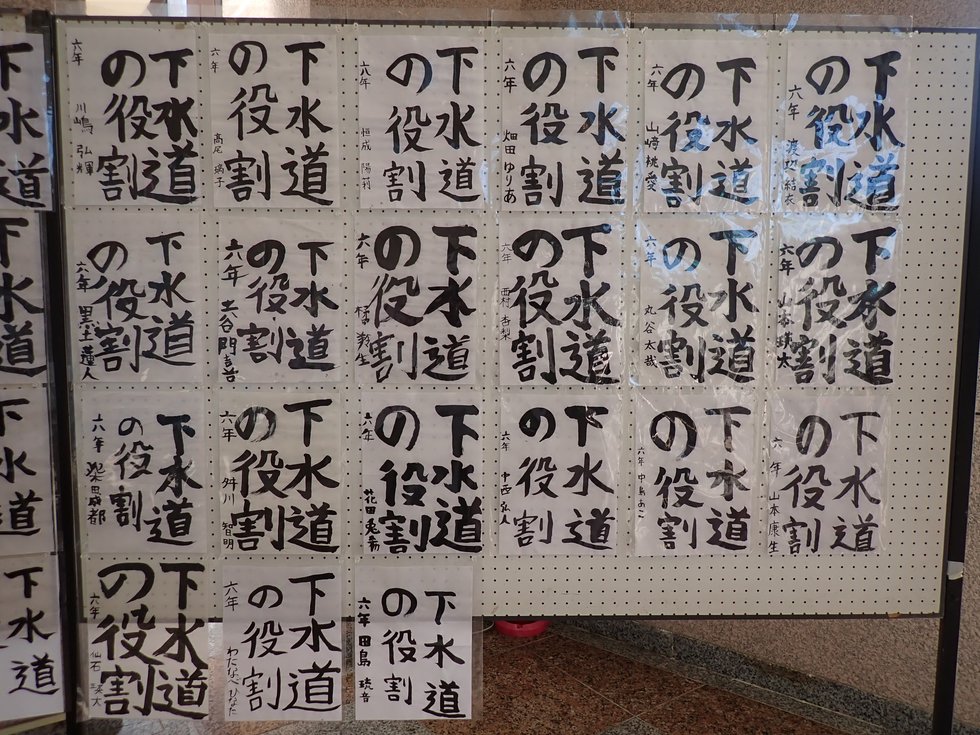 下水道
下水道
の役割
六年 川嶋 弘輝
下水道
の役割
六年 高尾 璃子
下水道
の役割
六年 恒成 陽莉
下水道
の役割
六年 畑田 ゆりあ
下水道
の役割
六年 山﨑 桃愛
下水道
の役割
六年 渡辺 結衣
下水道
下水道
の役割
六年 黒土蓮人
下水道
の役割
六年
下水道
の役割
六年 橘 敦生
下水道
の役割
六年 西村 杏梨
下水道
の役割
六年 丸谷 太哉
下水道
の役割
六年 山本
下水道
下水道
の役割
六年
下水道
の役割
六年 舛川 智明
下水道
の役割
六年 花田
下水道
の役割
六年 中西 弘人
下水道
の役割
六年 中島 あこ
下水道
の役割
六年 山本 康生
下水道
下水道
の役割
六年 仙石
下水道
の役割
六年 わたなべ ひなた
下水道
の役割
六年 田島 琉音